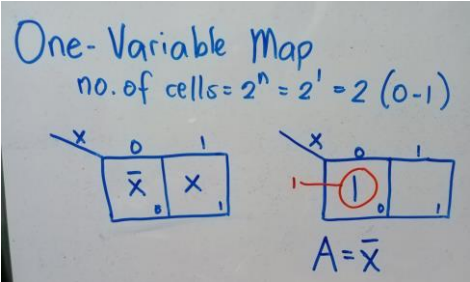 One-Variable Map
no. of cells = 2ⁿ = 2¹ = 2 (0-1)
x 0 1
x̄ x
0 1
x 0 1
1 1
0 1
A = x̄